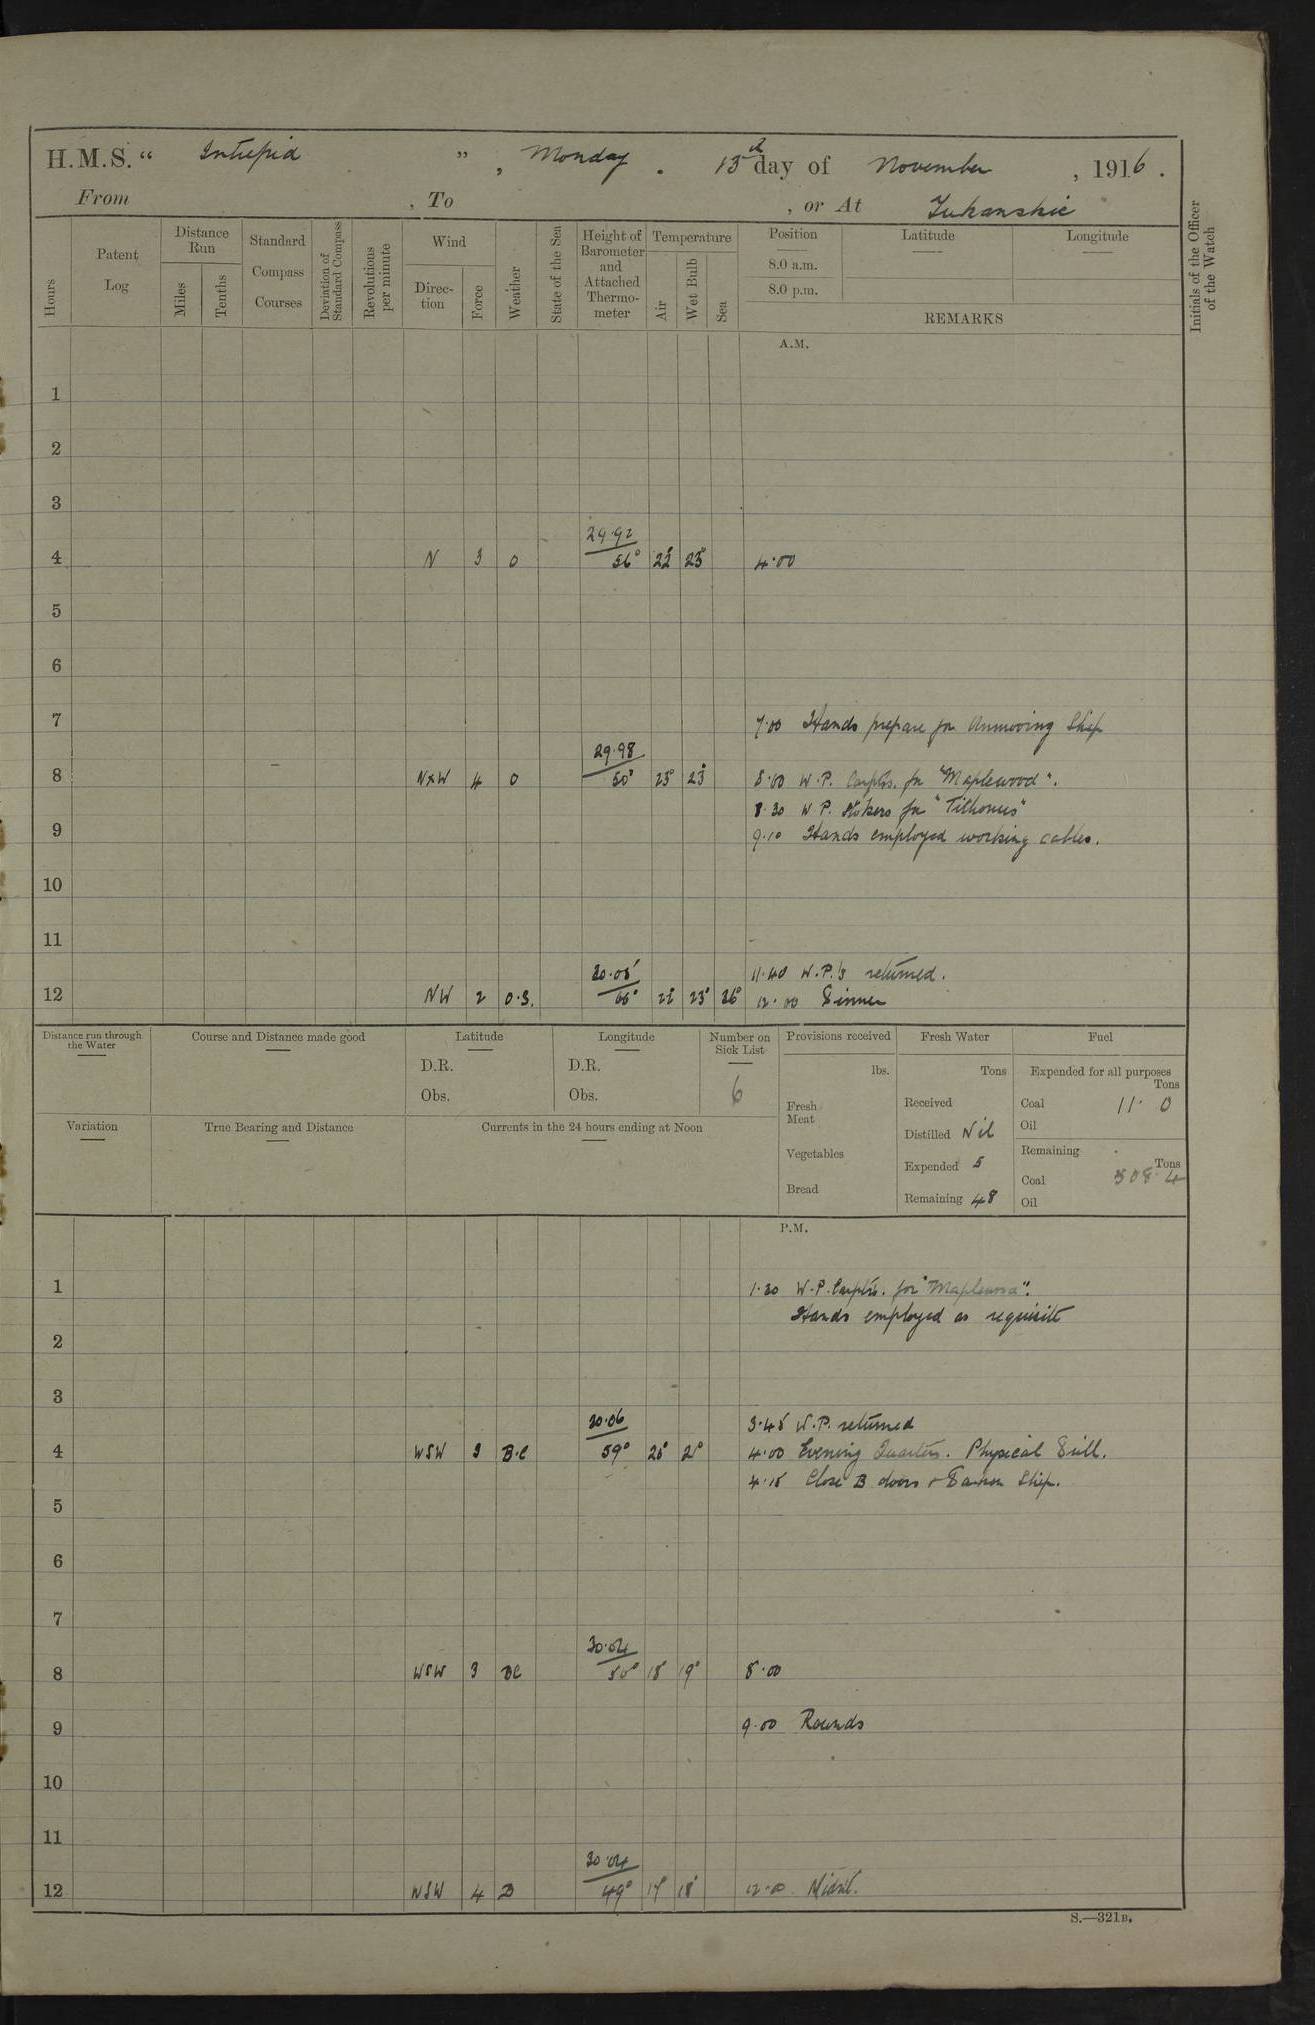 H.M.S. “ Intrepid ” , Monday . 13th day of November , 1916 .
From , To , or At Iukanskie
Hours
Patent Log
Distance Run
Miles
Tenths
Standard Compass Courses
Deviation of Standard Compass
Revolutions per minute
Wind
Direc-tion
Force
Weather
State of the Sea
Height of Barometer and Attached Thermo-meter
Temperature
Air
Wet Bulb
Sea
Position
8.0 a.m.
8.0 p.m.
Latitude
Longitude
REMARKS
Initials of the Officer of the Watch
A.M.
1
2
3
29.92
4 N 3 O 56° 22° 23° 4.00
5
6
7 7.00 Hands prepare for Unmooring Ship
29.98
8 NxW 4 O 50° 23° 23° 8.00 W.P. Carptrs. for "Maplewood".
8.30 W.P. Stokers for "Tithonus"
9 9.10 Hands employed working cables.
10
11
30.05 11.40 W.P.'s returned.
12 NW 2 O.S. 66° 22° 23° 26° 12.00 Dinner
Distance run through the Water
Course and Distance made good
Latitude
D.R.
Obs.
Longitude
D.R.
Obs.
Number on Sick List
6
Provisions received
lbs.
Fresh Meat
Vegetables
Bread
Fresh Water
Tons
Received
Distilled Nil
Expended 5
Remaining 48
Fuel
Expended for all purposes
Tons
Coal 11. 0
Oil
Remaining
Tons
Coal 308.4
Oil
Variation
True Bearing and Distance
Currents in the 24 hours ending at Noon
P.M.
1 1.20 W.P. Carptrs. for "Maplewood".
Hands employed as requisite
2
3
30.06 3.45 W.P. returned
4 WSW 3 B.C 59° 20° 21° 4.00 Evening Quarters. Physical Drill.
4.15 Close B doors & Darken Ship.
5
6
7
30.04
8 WSW 3 BC 50° 18° 19° 8.00
9 9.00 Rounds
10
11
30.04
12 WSW 4 B 49° 17° 18° 12.0 Midnt.
S.—321B.